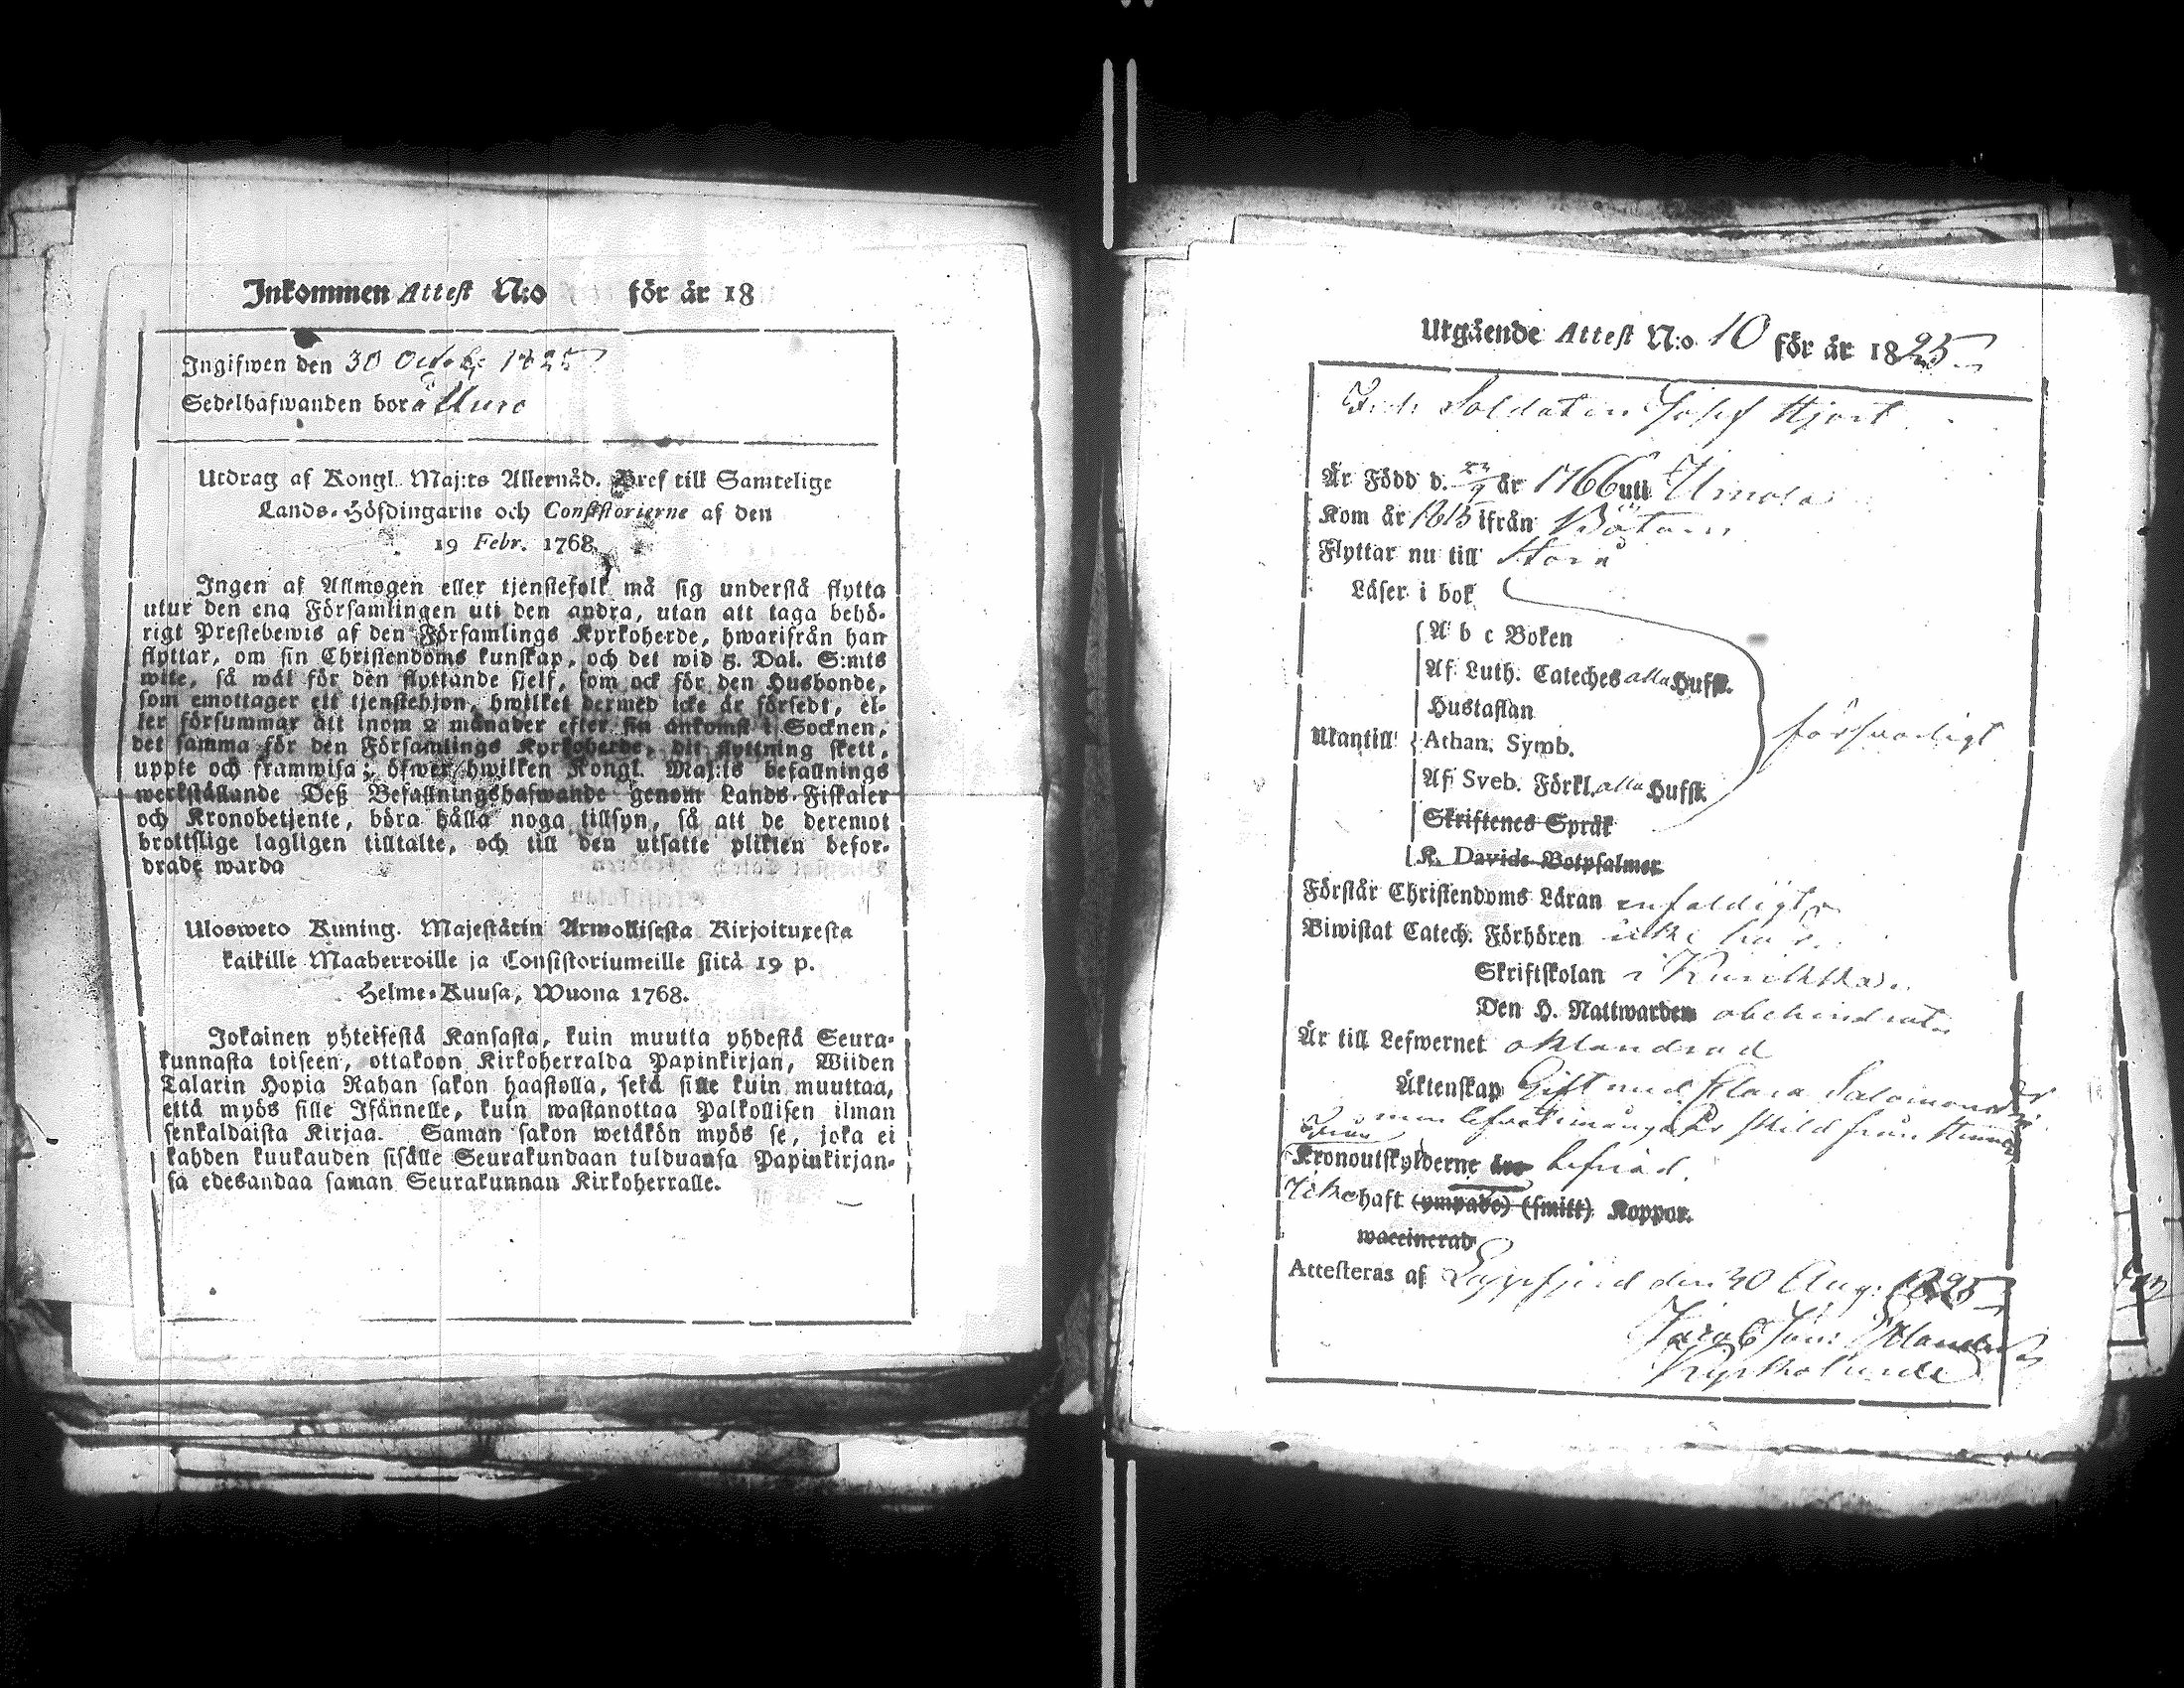 Inkommen Attest N:o för år 18
Ingifwen den 30 Octob: 1825
Sedelhafwanden bor å
Utdrag af Kongl. Maj:ts Allernåd. Bref till Samtelige
Lands-Höfdingarne och Consistorierne af den
19 Febr. 1768.
Ingen af Allmogen eller tjenstefolk må sig understå flytta
utur den ena Församlingen uti den andra, utan att taga behö-
rigt Prestebewis af den Församlings Kyrkoherde, hwarifrån han
flyttar, om sin Christendoms kunskap, och det wid 5. Dal. S:mts
wite, så wäl för den flyttande sjelf, som ock för den Husbonde,
som emottager ett tjenstehjon, hwilket dermed icke är försedt, el-
ler försummar att inom 2 månader efter sin ankomst i Socknen,
det samma för den Församlings Kyrkoherde, dit flyttning skett,
uppte och framwisa; öfwer hwilken Kongl. Maj:ts befallnings
werkställande Deß Befallningshafwande genom Lands-Fiskaler
och Kronobetjente, böra hålla noga tillsyn, så att de deremot
brottslige lagligen tilltalte, och till den utsatte plikten befor-
drade warda
Ulosweto Kuning. Majestätin Armollisesta Kirjoituxesta
kaikille Maaherroille ja Consistoriumeille siitä 19 p.
Helme-Kuusa, Wuona 1768.
Jokainen yhteisestä Kansasta, kuin muutta yhdestä Seura-
kunnasta toiseen, ottakoon Kirkoherralda Papinkirjan, Wiiden
Talarin Hopia Rahan sakon haastolla, sekä sille kuin muuttaa,
että myös sille Isännelle, kuin wastanottaa Palkollisen ilman
senkaldaista Kirjaa. Saman sakon wetäkön myös se, joka ei
kahden kuukauden sisälle Seurakundaan tulduansa Papinkirjan-
sa edesandaa saman Seurakunnan Kirkoherralle.
Utgående Attest N:o 10 för år 1825
Soldaten Josef Hjort
Är Född d. år 1766 uti Umola
Kom år 1815 ifrån Bötom
Flyttar nu till Storå
Läser i bok
A b c Boken
Af Luth. Cateches alla Hufst.
Hustaflan
Utantill Athan. Symb. försvarligt
Af Sveb. Förkl. alla Hufst.
Skriftenes Språk
K. Davids Botpsalmer
Förstår Christendoms Läran enfaldigt
Biwistat Catech. Förhören icke här
Skriftskolan i Kurikka
Den H. Nattwarden obehindrat
Är till Lefwernet oklandrad
Äktenskap Gift med Clara Salomonsdr
men lefvat i många år skild från henne
Kronoutskylderne äro befriad.
Icke haft (ympade) (smitt) Koppor.
waccinerad
Attesteras af Lappfjerd den 30 Aug. 1825
Jacob
Kyrkoherde